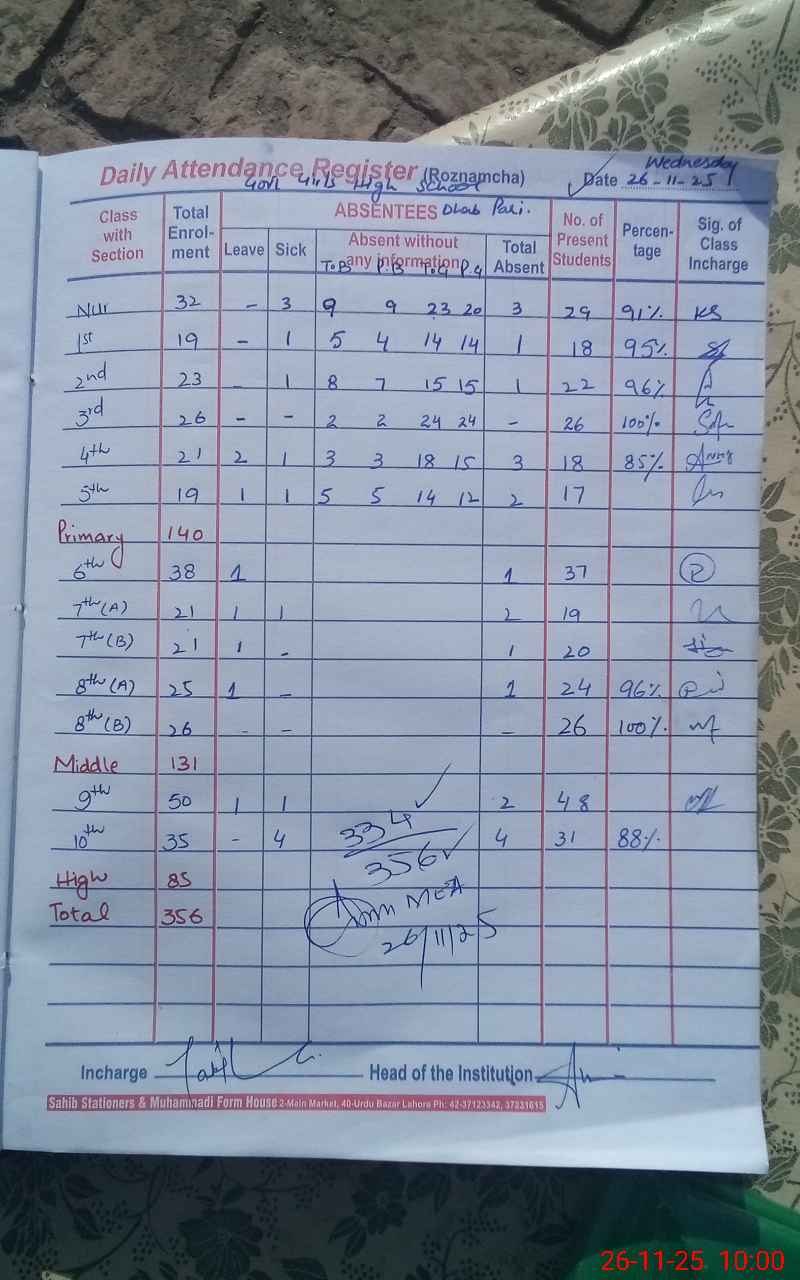 Daily Attendance Register (Roznamcha)
Wednesday
Date 26-11-25
Govt Girls High School
Class with Section Total Enrol-ment ABSENTEES Dhab Pari. No. of Present Students Percen-tage Sig. of Class Incharge
Leave Sick Absent without any information Total Absent
T.B P.B T.G P.G
Nur 32 - 3 9 9 23 20 3 29 91% KS
1st 19 - 1 5 4 14 14 1 18 95%
2nd 23 - 1 8 7 15 15 1 22 96%
3rd 26 - - 2 2 24 24 - 26 100%
4th 21 2 1 3 3 18 15 3 18 85%
5th 19 1 1 5 5 14 12 2 17
Primary 140
6th 38 1 1 37
7th (A) 21 1 1 2 19
7th (B) 21 1 - 1 20
8th (A) 25 1 - 1 24 96%
8th (B) 26 - - - 26 100%
Middle 131
9th 50 1 1 2 48
10th 35 - 4 334 4 31 88%
356
High 85
Total 356 MEA
26/11/25
Incharge Head of the Institution
Sahib Stationers & Muhammadi Form House 2-Main Market, 40-Urdu Bazar Lahore Ph: 42-37123342, 37231615
26-11-25 10:00